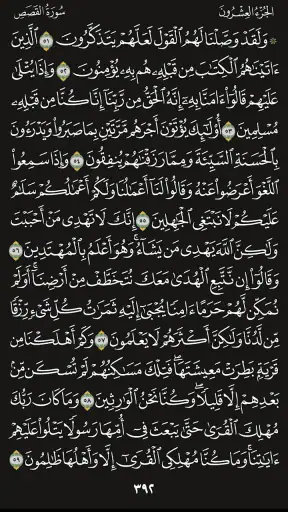 الجُزْءُ العِشْرُونَ سُورَةُ القَصَصِ
۞ وَلَقَدْ وَصَّلْنَا لَهُمُ ٱلْقَوْلَ لَعَلَّهُمْ يَتَذَكَّرُونَ ٥١ ٱلَّذِينَ
ءَاتَيْنَٰهُمُ ٱلْكِتَٰبَ مِن قَبْلِهِۦ هُم بِهِۦ يُؤْمِنُونَ ٥٢ وَإِذَا يُتْلَىٰ
عَلَيْهِمْ قَالُوٓا۟ ءَامَنَّا بِهِۦٓ إِنَّهُ ٱلْحَقُّ مِن رَّبِّنَآ إِنَّا كُنَّا مِن قَبْلِهِۦ
مُسْلِمِينَ ٥٣ أُو۟لَٰٓئِكَ يُؤْتَوْنَ أَجْرَهُم مَّرَّتَيْنِ بِمَا صَبَرُوا۟ وَيَدْرَءُونَ
بِٱلْحَسَنَةِ ٱلسَّيِّئَةَ وَمِمَّا رَزَقْنَٰهُمْ يُنفِقُونَ ٥٤ وَإِذَا سَمِعُوا۟
ٱللَّغْوَ أَعْرَضُوا۟ عَنْهُ وَقَالُوا۟ لَنَآ أَعْمَٰلُنَا وَلَكُمْ أَعْمَٰلُكُمْ سَلَٰمٌ
عَلَيْكُمْ لَا نَبْتَغِى ٱلْجَٰهِلِينَ ٥٥ إِنَّكَ لَا تَهْدِى مَنْ أَحْبَبْتَ
وَلَٰكِنَّ ٱللَّهَ يَهْدِى مَن يَشَآءُ وَهُوَ أَعْلَمُ بِٱلْمُهْتَدِينَ ٥٦
وَقَالُوٓا۟ إِن نَّتَّبِعِ ٱلْهُدَىٰ مَعَكَ نُتَخَطَّفْ مِنْ أَرْضِنَآ أَوَلَمْ
نُمَكِّن لَّهُمْ حَرَمًا ءَامِنًا يُجْبَىٰٓ إِلَيْهِ ثَمَرَٰتُ كُلِّ شَىْءٍ رِّزْقًا
مِّن لَّدُنَّا وَلَٰكِنَّ أَكْثَرَهُمْ لَا يَعْلَمُونَ ٥٧ وَكَمْ أَهْلَكْنَا مِن
قَرْيَةٍۭ بَطِرَتْ مَعِيشَتَهَا فَتِلْكَ مَسَٰكِنُهُمْ لَمْ تُسْكَن مِّنۢ
بَعْدِهِمْ إِلَّا قَلِيلًا وَكُنَّا نَحْنُ ٱلْوَٰرِثِينَ ٥٨ وَمَا كَانَ رَبُّكَ
مُهْلِكَ ٱلْقُرَىٰ حَتَّىٰ يَبْعَثَ فِىٓ أُمِّهَا رَسُولًا يَتْلُوا۟ عَلَيْهِمْ
ءَايَٰتِنَا وَمَا كُنَّا مُهْلِكِى ٱلْقُرَىٰٓ إِلَّا وَأَهْلُهَا ظَٰلِمُونَ ٥٩
٣٩٢